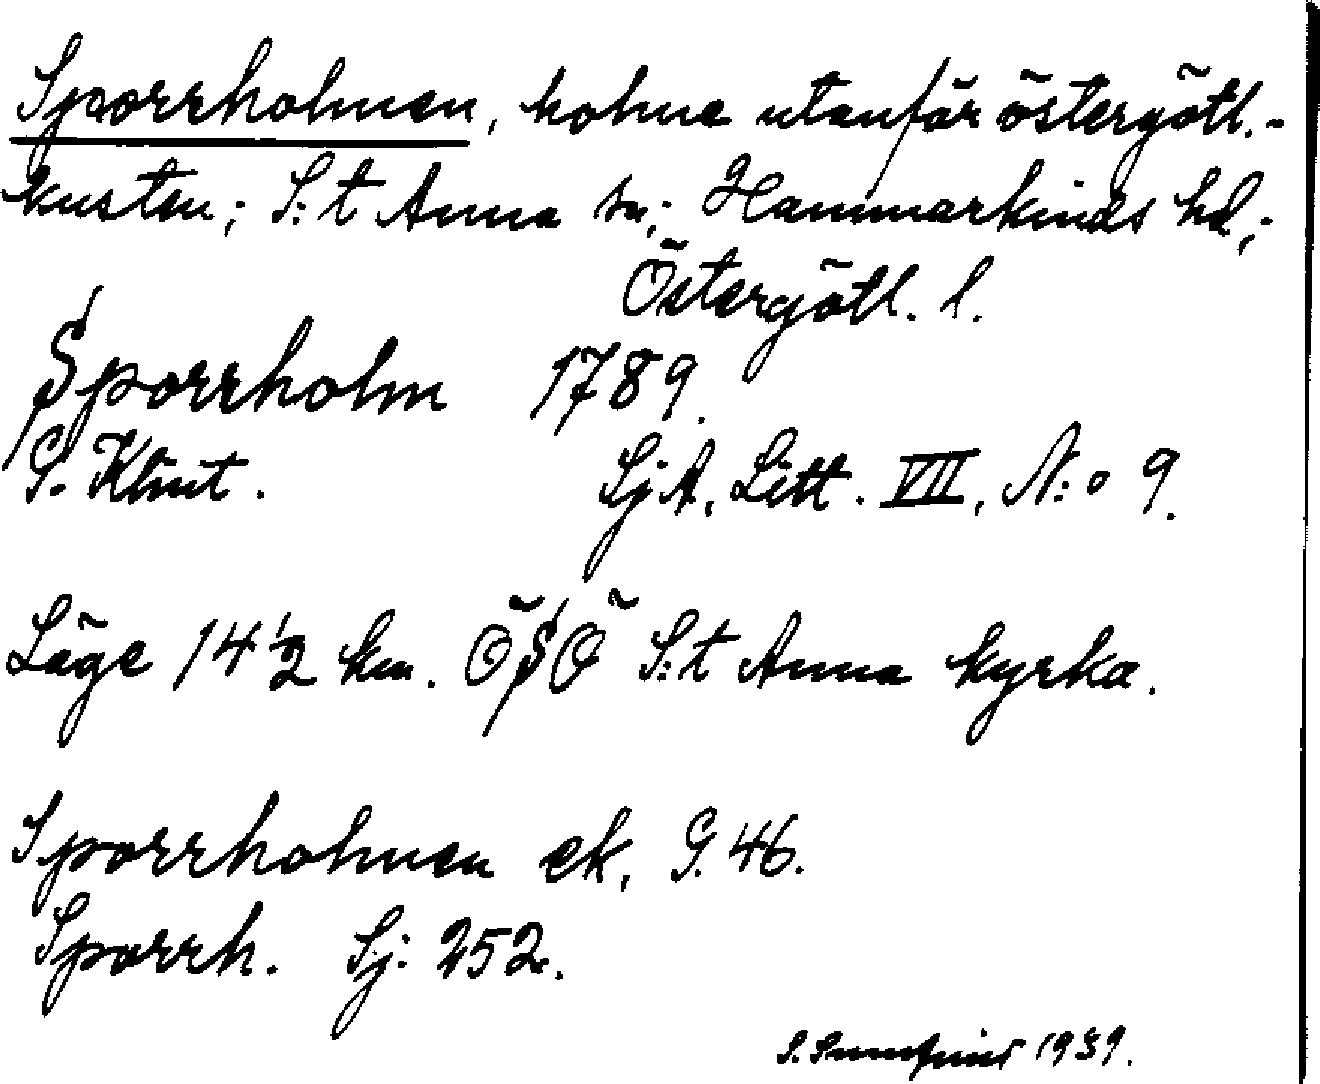 Sporrholmen, holme utanför östergötl.-
kusten; S:t Anna sn; Hammarkinds hd;
Östergötl. l.
Sporrholm 1789.
G. Klint. SjA, Litt. VII, N:o 9.
Läge 14 1/2 km. ÖSÖ S:t Anna kyrka.
Sporrholmen ek, G. 46.
Sporrh. Sj: 252.
S. 1939.